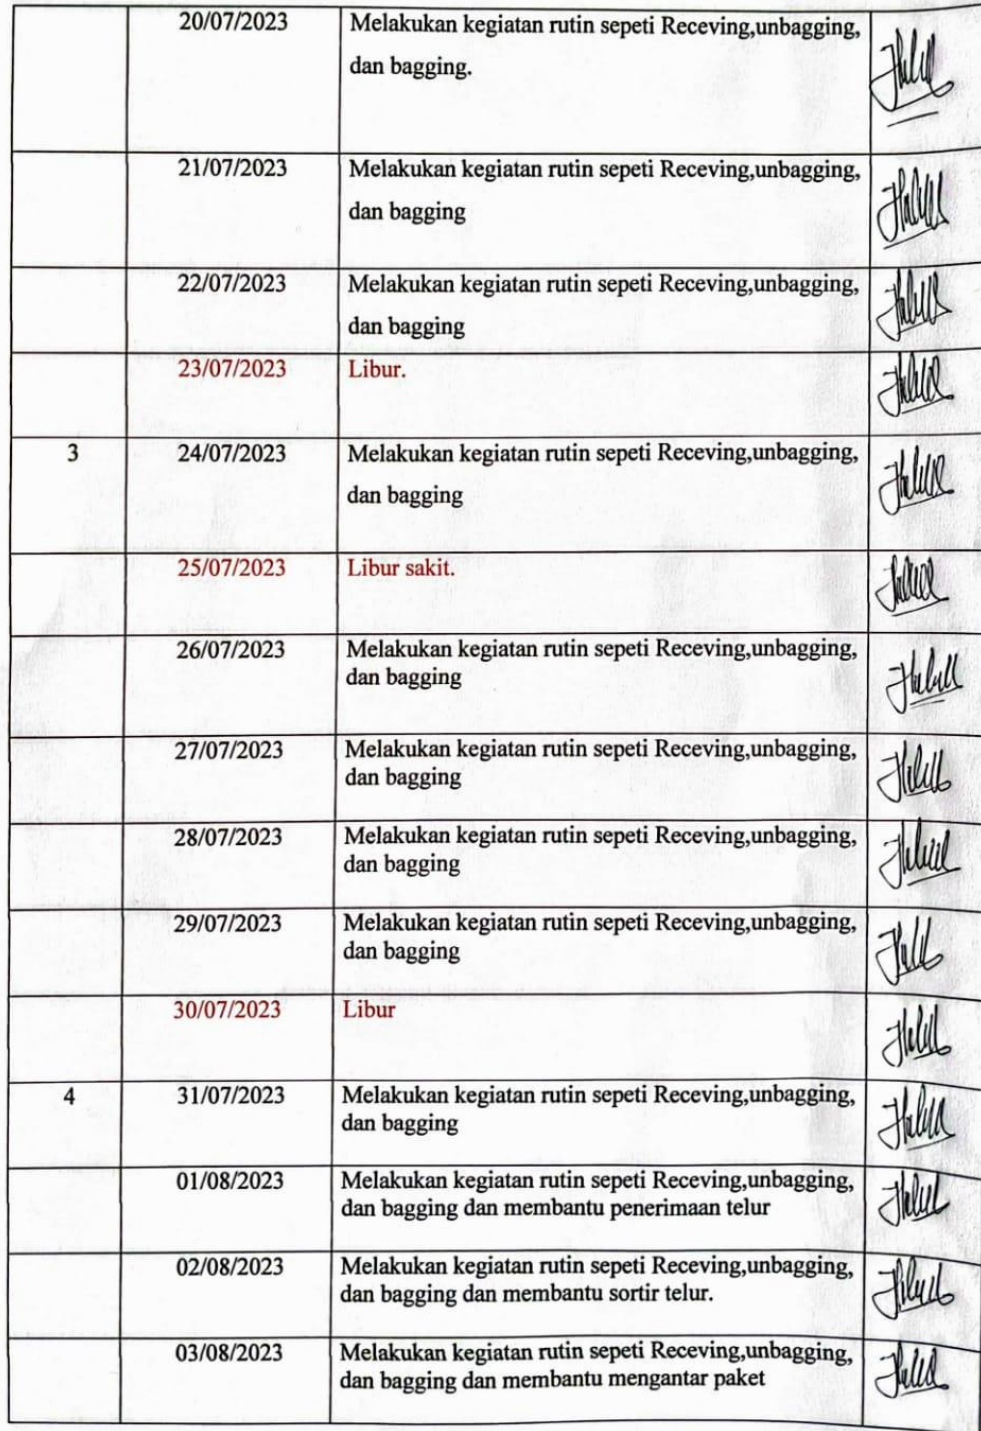 20/07/2023 Melakukan kegiatan rutin sepeti Receving,unbagging,
dan bagging.
21/07/2023 Melakukan kegiatan rutin sepeti Receving,unbagging,
dan bagging
22/07/2023 Melakukan kegiatan rutin sepeti Receving,unbagging,
dan bagging
23/07/2023 Libur.
3 24/07/2023 Melakukan kegiatan rutin sepeti Receving,unbagging,
dan bagging
25/07/2023 Libur sakit.
26/07/2023 Melakukan kegiatan rutin sepeti Receving,unbagging,
dan bagging
27/07/2023 Melakukan kegiatan rutin sepeti Receving,unbagging,
dan bagging
28/07/2023 Melakukan kegiatan rutin sepeti Receving,unbagging,
dan bagging
29/07/2023 Melakukan kegiatan rutin sepeti Receving,unbagging,
dan bagging
30/07/2023 Libur
4 31/07/2023 Melakukan kegiatan rutin sepeti Receving,unbagging,
dan bagging
01/08/2023 Melakukan kegiatan rutin sepeti Receving,unbagging,
dan bagging dan membantu penerimaan telur
02/08/2023 Melakukan kegiatan rutin sepeti Receving,unbagging,
dan bagging dan membantu sortir telur.
03/08/2023 Melakukan kegiatan rutin sepeti Receving,unbagging,
dan bagging dan membantu mengantar paket